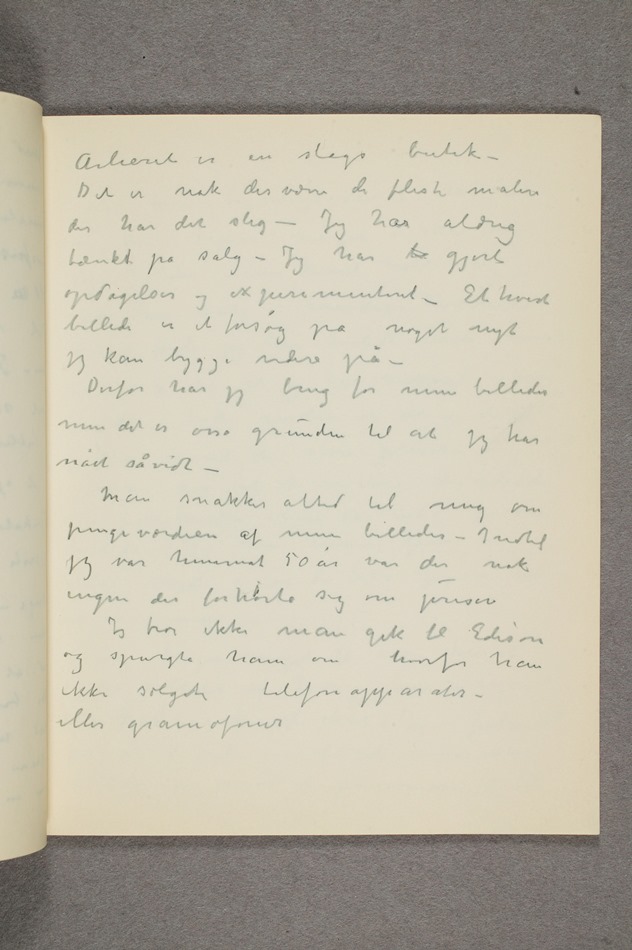 Atelieret er en slags butik –
Det er nok desværre de fleste malere
der har det slig – Jeg har aldrig
tænkt på salg – Jeg har gjort
opdagelser og experimentert – Ethvert
billede er et forsøg på noget nyt
jeg kan bygge videre på –
Derfor har jeg brug for mine billeder
men det er osså grunden til at jeg har
nået såvidt –
Man snakker altid til meg om
pengeværdien af mine billeder – Indtil
jeg var henimot 50 år var der nok
ingen der forhørte sig om prisen
Jeg tror ikke man gik til Edison
og spurgte ham om hvorfor han
ikke solgte telefonapparater –
eller gramofoner